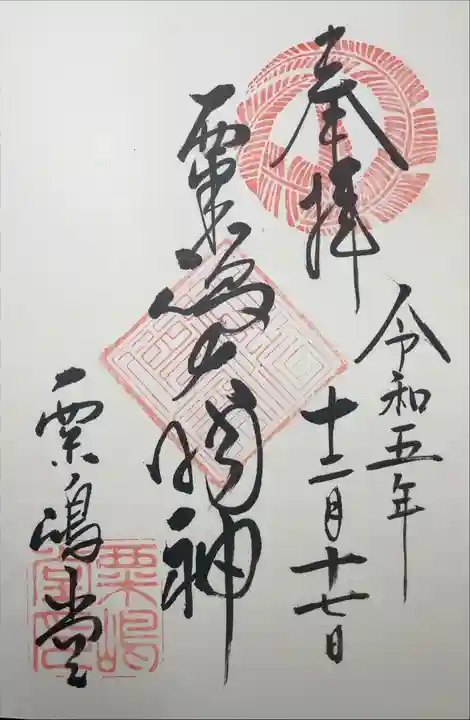 奉拝
令和五年
十二月十七日
粟嶋大明神
粟嶋堂